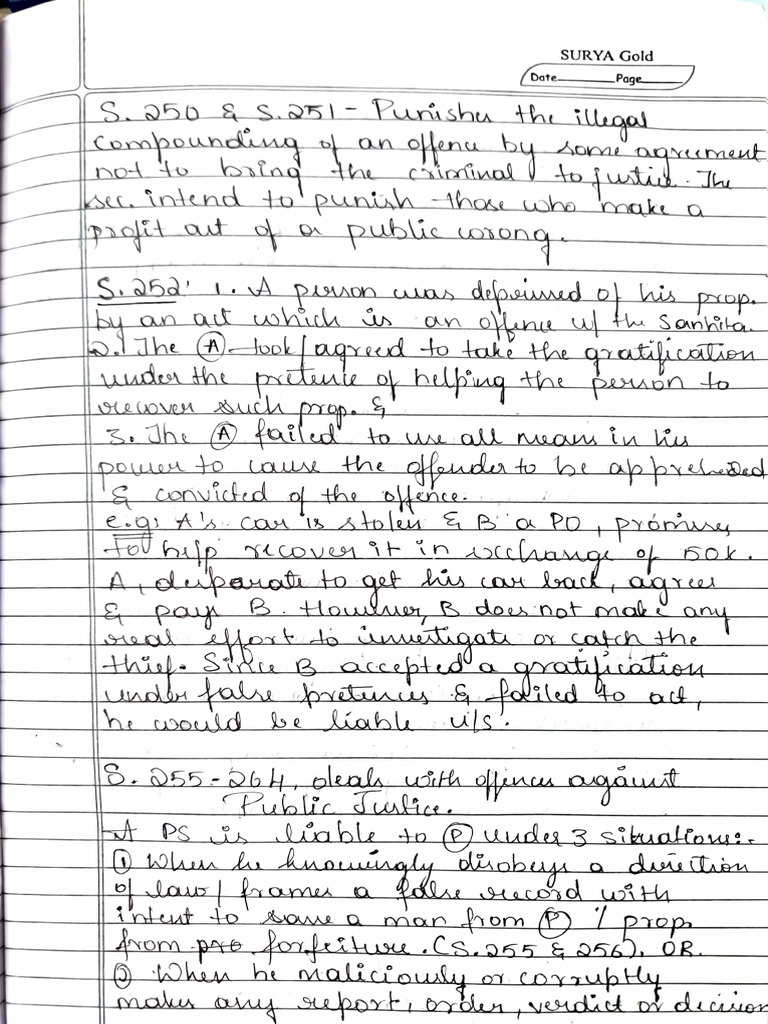 SURYA Gold
Date Page
S. 250 & S. 251 - Punishes the illegal
compounding of an offence by some agreement
not to bring the criminal to justice. The
sec. intend to punish those who make a
profit out of a public wrong.
S. 252: 1. A person was deprived of his prop.
by an act which is an offence u/ the Sanhita.
2. The (A) took/agreed to take the gratification
under the pretence of helping the person to
recover such prop. &
3. The (A) failed to use all means in his
power to cause the offender to be apprehended
& convicted of the offence.
e.g: A's car is stolen & B a PO, promises
to help recover it in exchange of 50k.
A, desperate to get his car back, agrees
& pays B. However, B does not make any
real effort to investigate or catch the
thief. Since B accepted a gratification
under false pretences & failed to act,
he would be liable u/s.
S. 255-264, deals with offences against
Public Justice.
A PS is liable to (P) under 3 situations:-
① When he knowingly disobeys a direction
of law/ frames a false record with
intent to save a man from (P) / prop
from forfeiture. (S. 255 & 256). OR
② When he maliciously or corruptly
makes any report, order, verdict or decision